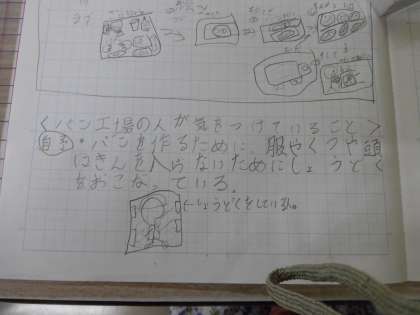 <パン工場の人が気をつけていること>
自予・パンを作るために、服やくつや頭
にきんを入らないためにしょうどく
をおこなっている。
←しょうどくをしている。